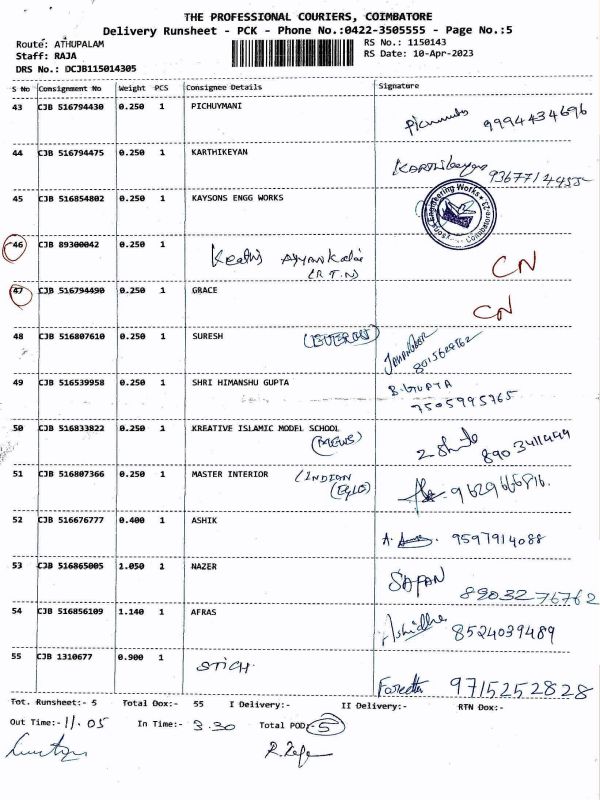 THE PROFESSIONAL COURIERS, COIMBATORE
Delivery Runsheet - PCK - Phone No.:0422-3505555 - Page No.:5
Route: ATHUPALAM
RS No.: 1150143
Staff: RAJA
RS Date: 10-Apr-2023
DRS No.: DCJB115014305
S No Consignment No Weight PCS Consignee Details Signature
43 CJB 516794430 0.250 1 PICHUYMANI
9994434696
44 CJB 516794475 0.250 1 KARTHIKEYAN
Karthikeyan
45 CJB 516854802 0.250 1 KAYSONS ENGG WORKS
Engineering Works
Coimbatore-23
46 CJB 89300042 0.250 1
(R.T.N)
CN
47 CJB 516794490 0.250 1 GRACE
CN
48 CJB 516807610 0.250 1 SURESH
49 CJB 516539958 0.250 1 SHRI HIMANSHU GUPTA B. GUPTA
7505995765
50 CJB 516833822 0.250 1 KREATIVE ISLAMIC MODEL SCHOOL
51 CJB 516807366 0.250 1 MASTER INTERIOR (INDIAN
9629666816.
52 CJB 516676777 0.400 1 ASHIK
9597914088
53 CJB 516865005 1.050 1 NAZER SAFAN
8903276762
54 CJB 516856109 1.140 1 AFRAS
8524039489
55 CJB 1310677 0.900 1 STICH
9715252828
Tot. Runsheet:- 5 Total Dox:- 55 I Delivery:- II Delivery:- RTN Dox:-
Out Time:- 11.05 In Time:- 3.30 Total POD:- 5